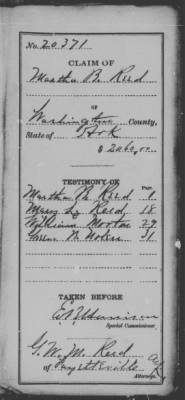 No. 20371
CLAIM OF
Martha B. Reed
OF
Washington County,
State of Ark
$ 2060.00
TESTIMONY OF
Page.
Martha B. Reed 1
Mary Reed 18
William Morton 29
31
TAKEN BEFORE
Special Commissioner.
G. W. M. Reed
Attorney.
of Fayetteville